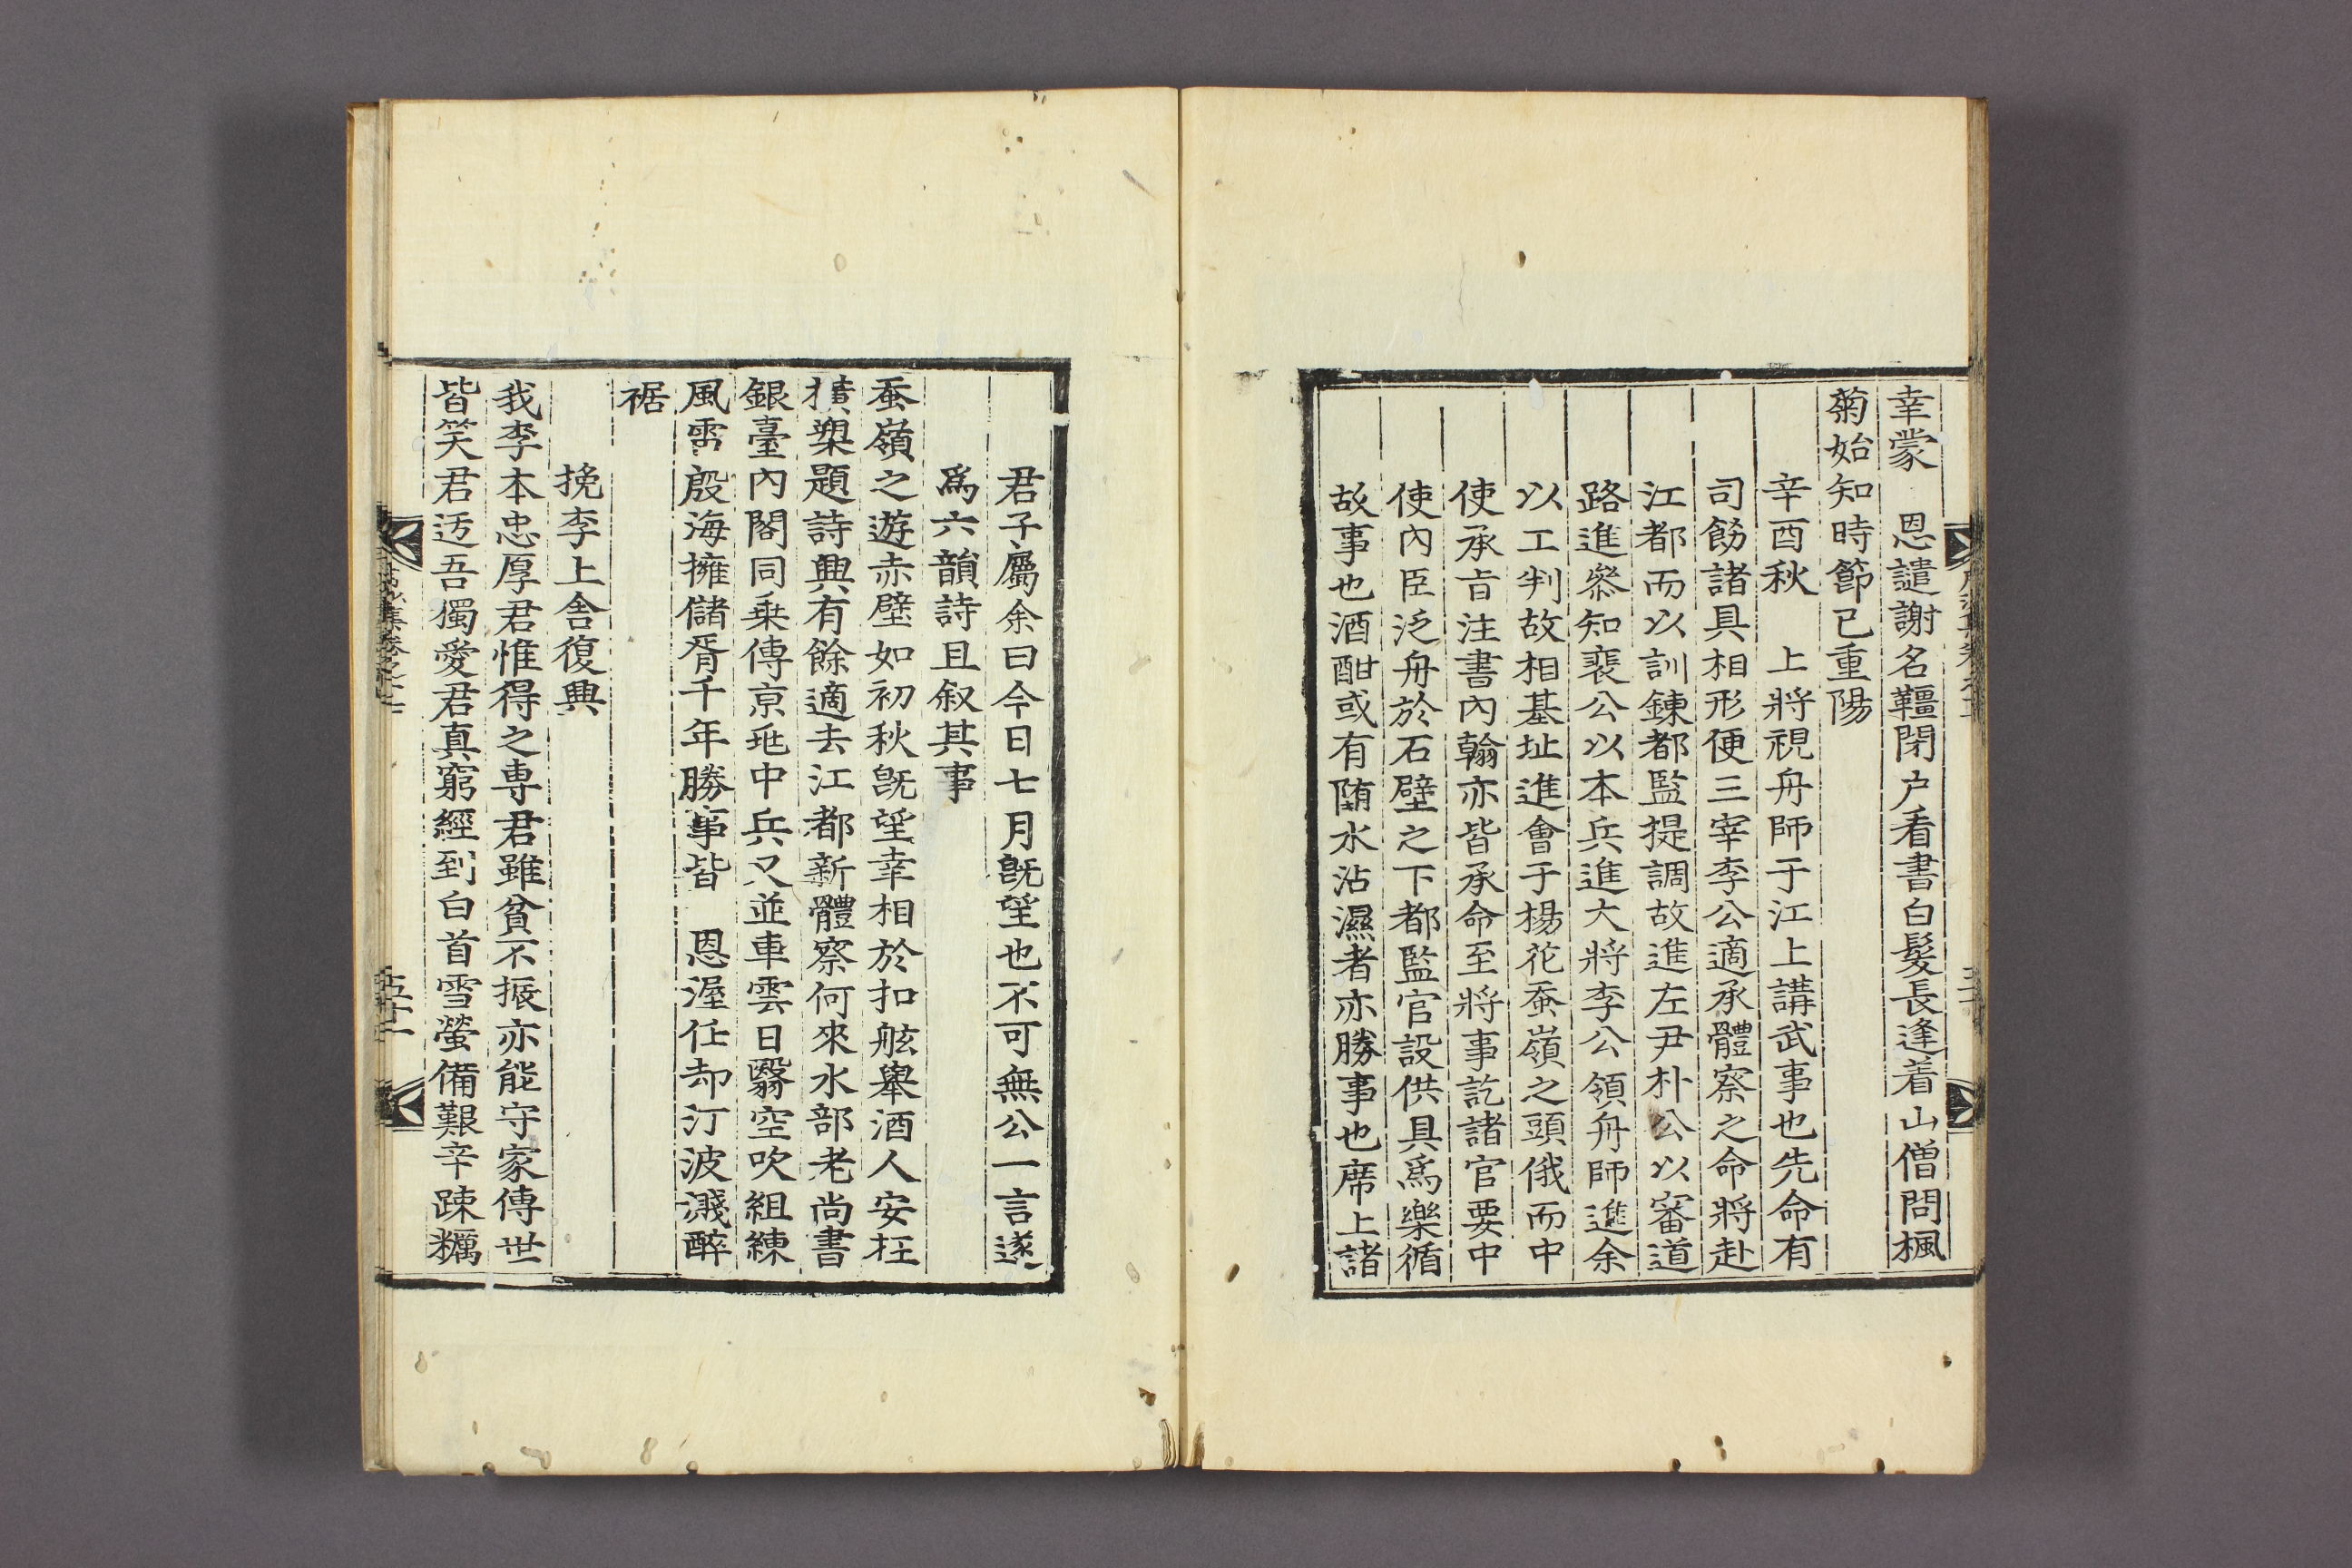 幸蒙　恩譴謝名韁閉户看書白髮長逢着山僧問楓
菊始知時節已重陽
辛酉秋　上將視舟師于江上講武事也先命有
司飭諸具相形便三宰李公適承體察之命將赴
江都而以訓鍊都監提調故進左尹朴公以審道
路進叅知裵公以本兵進大將李公領舟師進余
以工判故相基址進會于楊花蚕嶺之頭俄而中
使承旨注書內翰亦皆承命至將事訖諸官要中
使內臣泛舟於石壁之下都監官設供具爲樂循
故事也酒酣或有墮水沾濕者亦勝事也席上諸
君子屬余曰今日七月旣望也不可無公一言遂
爲六韻詩且叙其事
蚕嶺之遊赤壁如初秋旣望幸相於扣舷擧酒人安在
橫槊題詩興有餘適去江都新體察何來水部老尙書
銀臺內閣同乘傳京兆中兵又並車雲日翳空吹組練
風雷殷海擁儲胥千年勝事皆　恩渥任却汀波濺醉
裾
挽李上舍復興
我李本忠厚君惟得之專君雖貧不振亦能守家傳世
皆笑君迃吾獨愛君真窮經到白首雪螢備艱辛踈糲
五十二